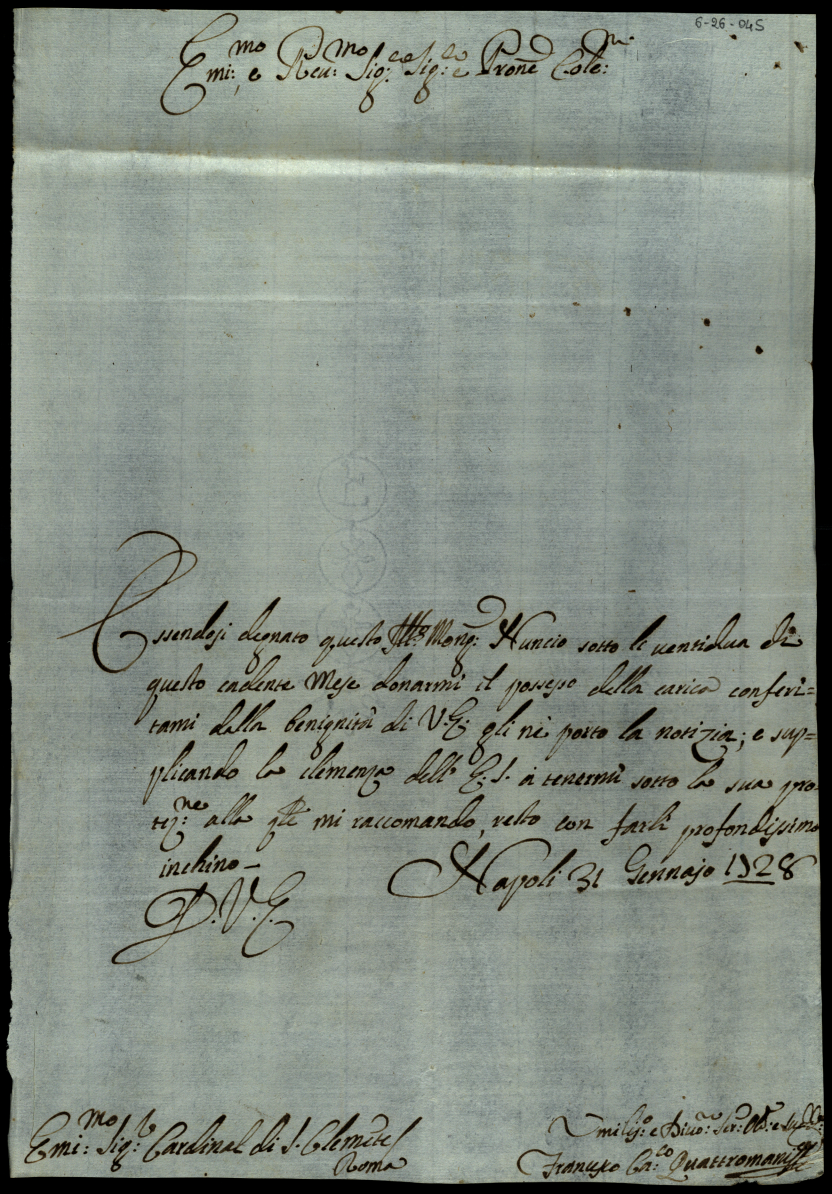 6-26-045
Emi:mo e Reu:mo Sig:re Sig:re e Prone Cole:mo
Essendosi degnato questo Ill:mo Monsg: Nuncio sotto li ventidua di
questo cadente Mese donarmi il possesso della carica conferi=
tami dalla benignità di V:E: gli nè porto la notizia; e sup=
plicando la clemenza dell' E.S. à tenermi sotto la sua pro=
tez:ne alla qle mi raccomando, resto con farli profondissimo
inchino—
D. V. E. Napoli 31 Gennajo 1728
Emi:mo Sig:r Cardinal di S. Clemte
Roma
Umiliss:o e Divo:mo Ser: Ob:
Francesco Ca:co Quattromani